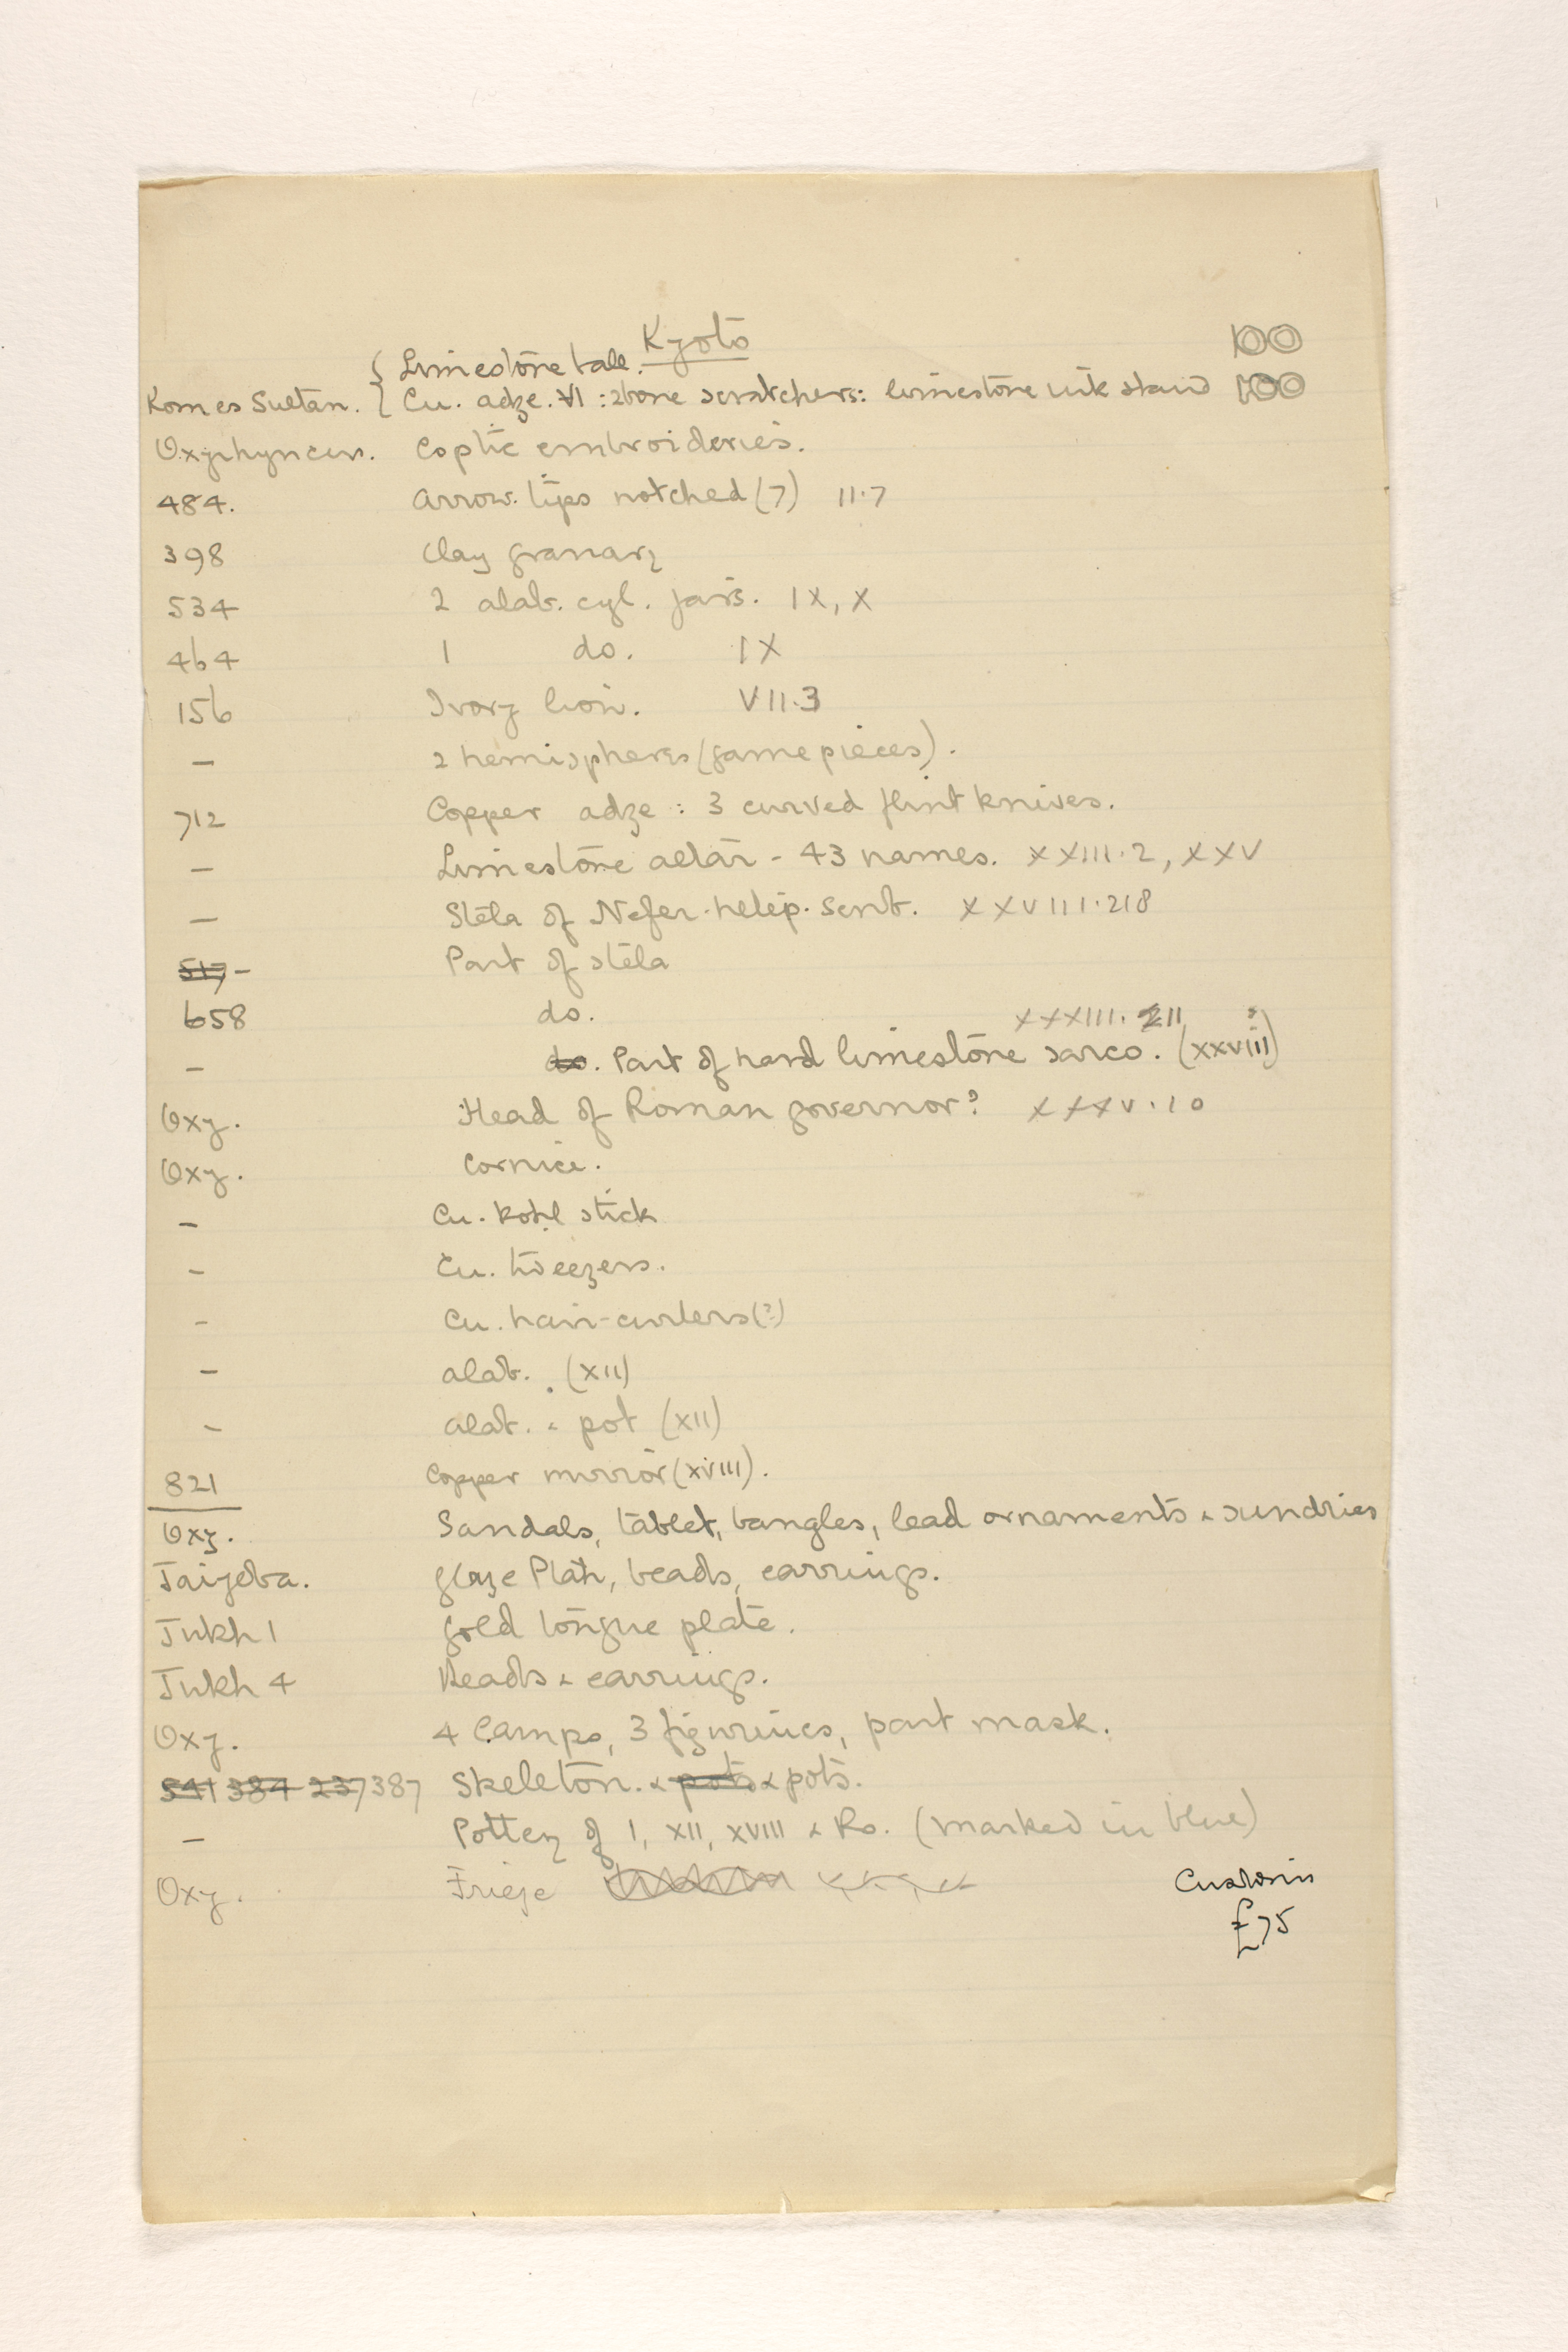 Kyoto 100
Limestone table.
Kom es Sultan. Cu. adze. VI : 2 bone scratchers: limestone ink stand 100
Oxyrhyncus. Coptic embroideries.
484. Arrow. tips notched (7) 11.7
398 Clay granary
534 2 alab. cyl. jars. IX, X
464 1 do. IX
156 Ivory lion. VII.3
— 2 hemispheres (game pieces).
712 Copper adze : 3 curved flint knives.
— Limestone altar - 43 names. XXIII.2, XXV
— Stela of Nefer.hetep.senb. XXVIII.218
517 - Part of stela
658 do. XXXIII. 211
— do. Part of hard limestone sarco. (xxviii?)
Oxy. Head of Roman governor? XXXV.10
Oxy. Cornice.
— Cu. Kohl stick
- Cu. tweezers.
- Cu. hair-curlers (?)
— alab. (XII)
- alab. & pot (XII)
821 Copper mirror (XVIII).
Oxy. Sandals, tablet, bangles, lead ornaments & sundries
Taiyeba. glaze Ptah, beads, earrings.
Tukh 1 Gold tongue plate.
Tukh 4 Beads & earrings.
Oxy. 4 Lamps, 3 figurines, part mask.
541 384 237 387 Skeleton. & pots & pots.
— Pottery of I, XII, XVIII & Ro. (marked in blue)
Oxy. Frieze
£75